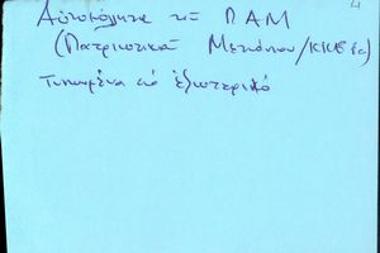 4
Αυτοκόλλητα του ΠΑΜ
(Πατριωτικού Μετώπου/ΚΚΕ εσ)
Τυπωμένα στο εξωτερικό